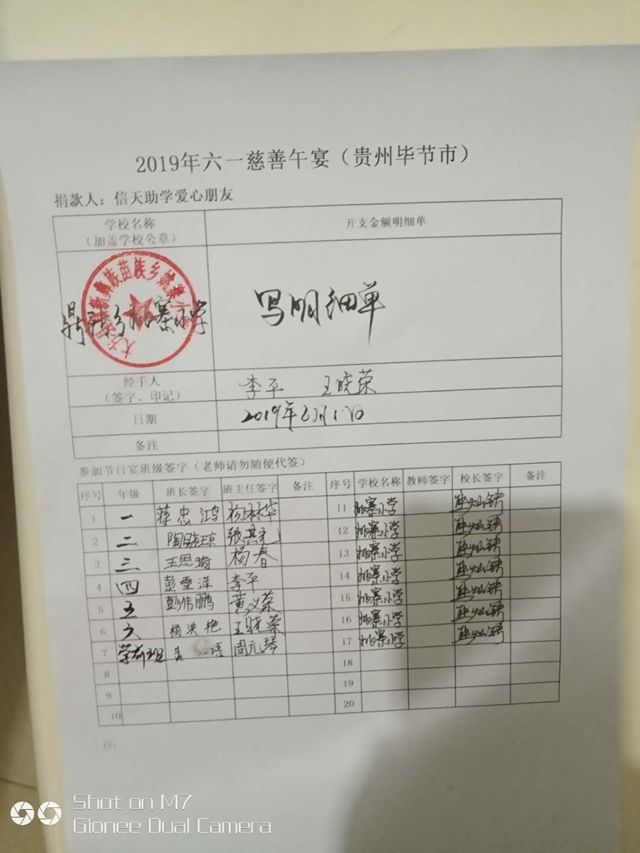 2019年六一慈善午宴（贵州毕节市）
捐款人：信天助学爱心朋友
学校名称
（加盖学校公章）
开支金额明细单
写明细单
经手人
（签字、印记）
李平 王晓荣
日期
2019年6月1日
备注
参加节日宴班级签字（老师请勿随便代签）
序号 年级 班长签字 班主任签字 备注 序号 学校名称 教师签字 校长签字 备注
1 一 蒋忠鸿 11 小学
2 二 12 小学
3 三 王思 杨春 13 小学
4 四 彭雪洋 李平 14 小学
5 五 彭伟鹏 黄义荣 15 小学
6 六 杨洪艳 王晓荣 16 小学
7 学前班 周元琴 17 小学
8 18
9 19
10 20
注:
Shot on M7
Gionee Dual Camera